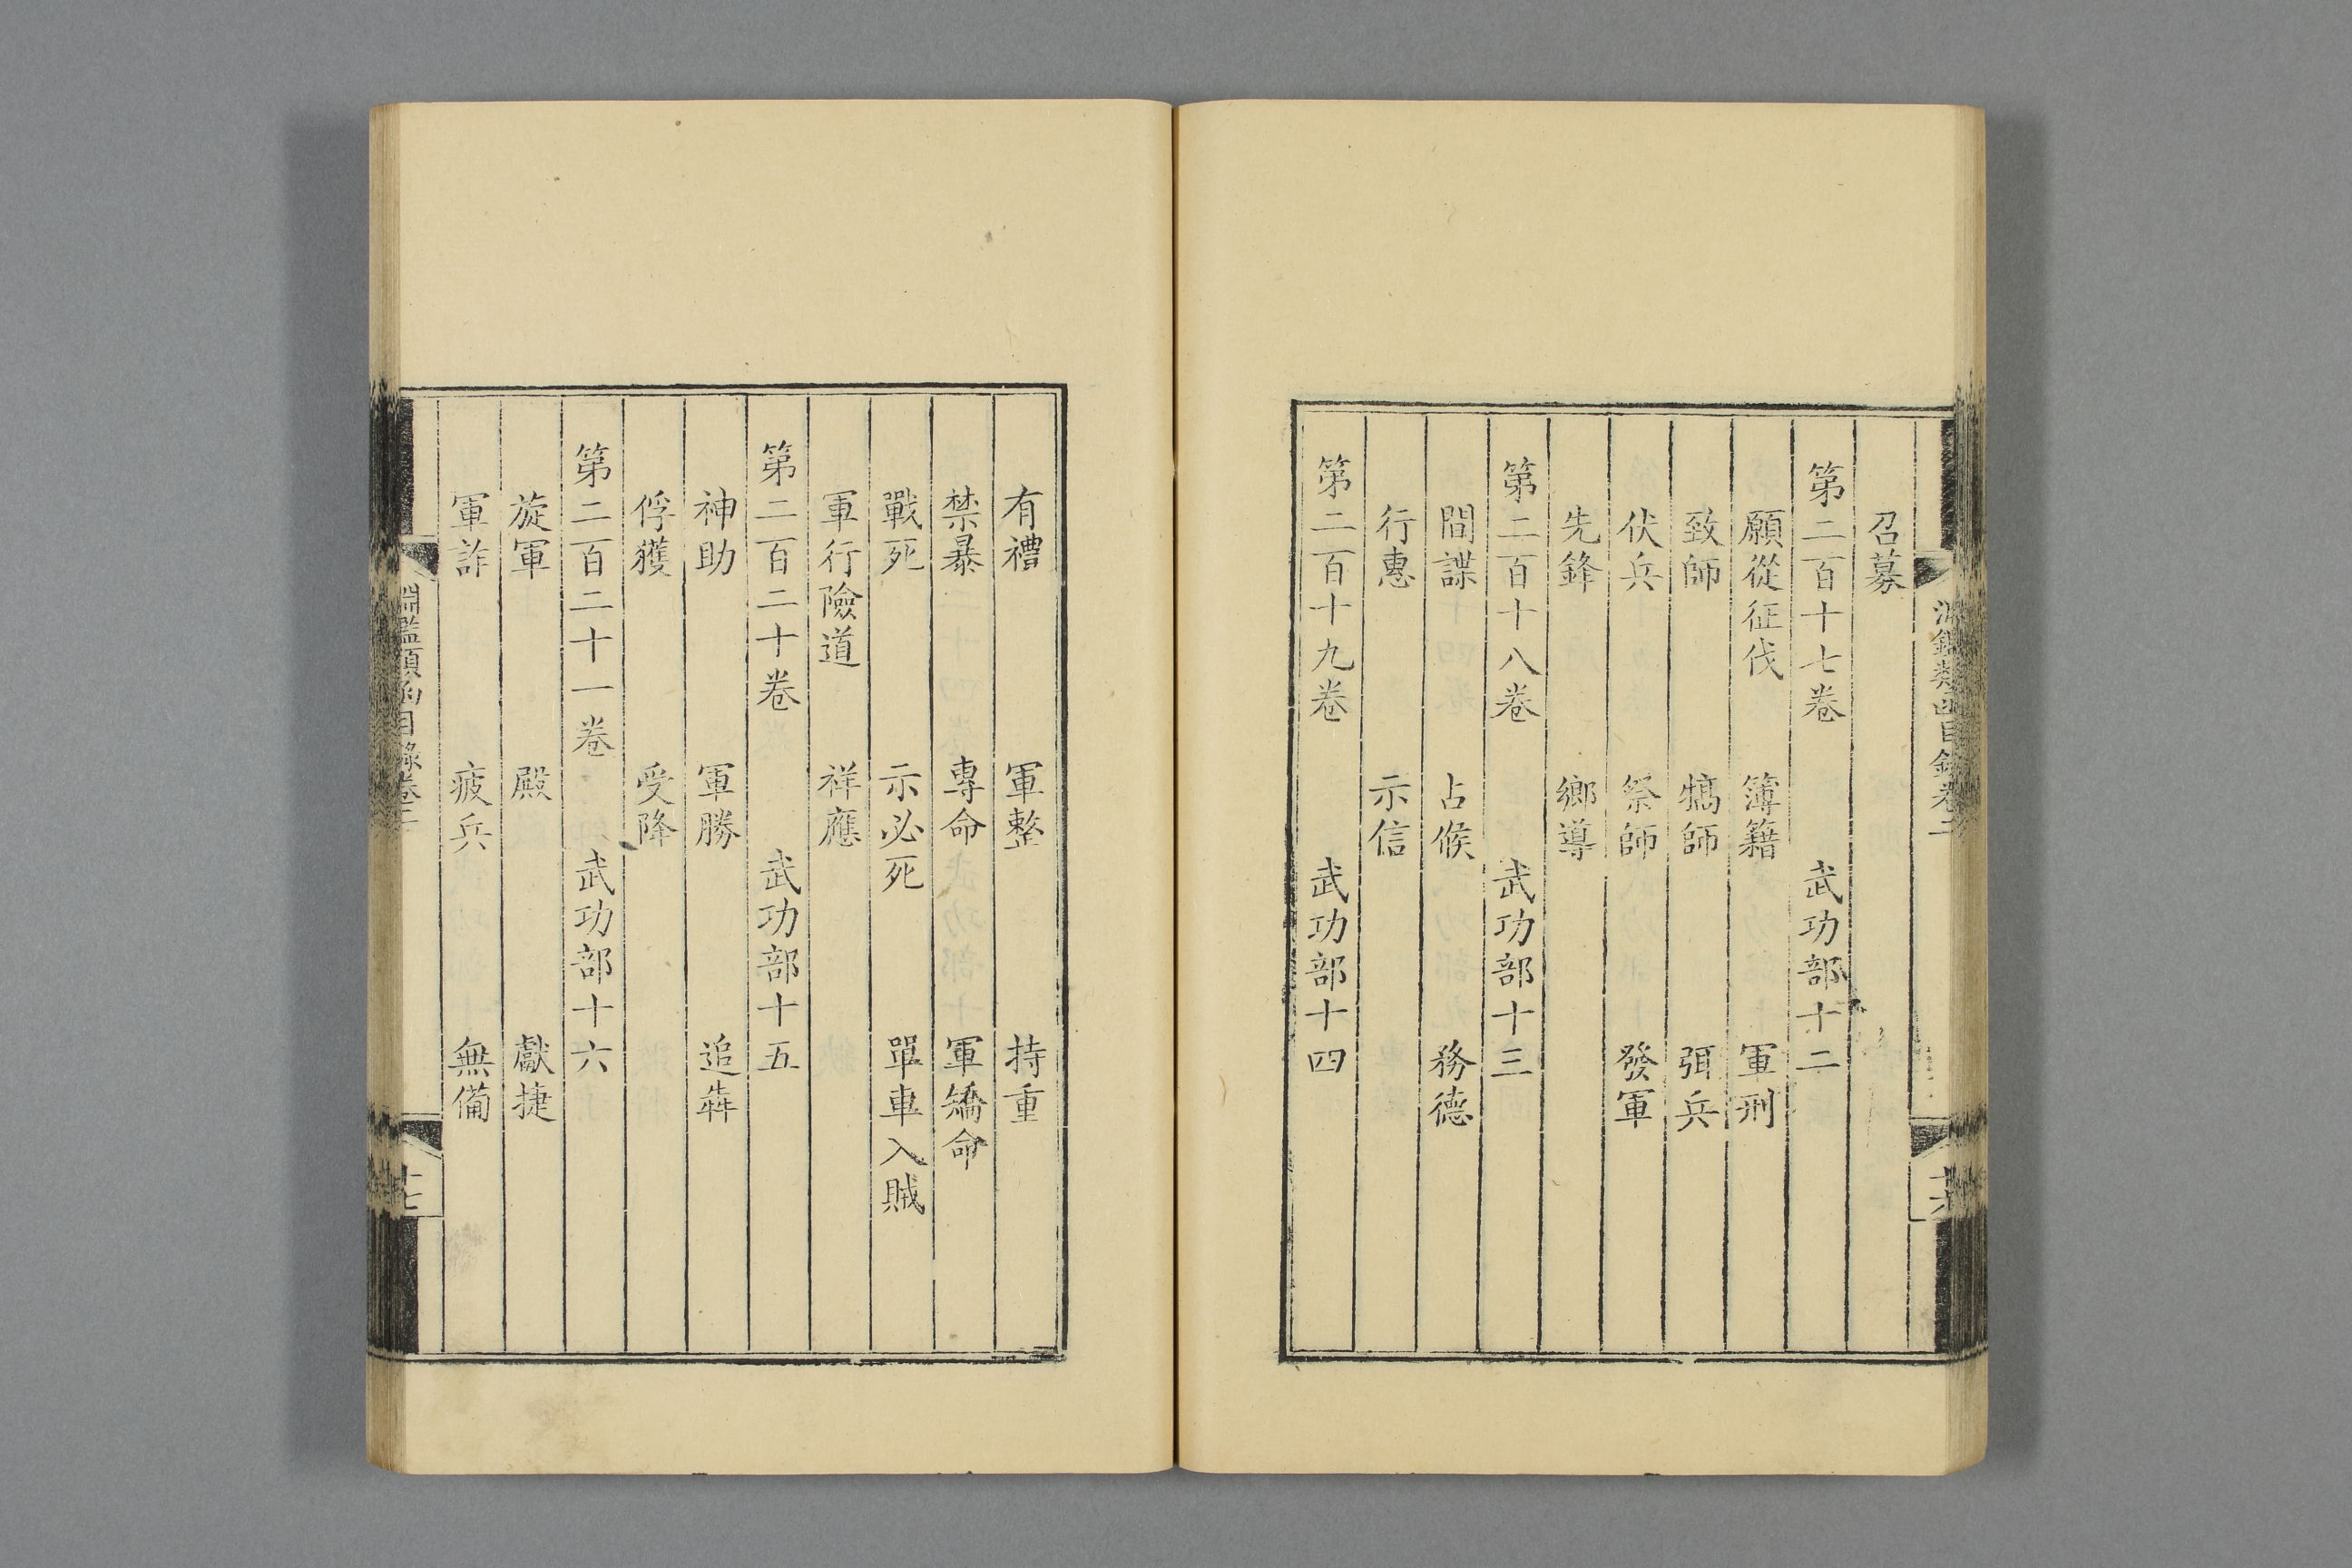 召募
第二百十七卷　武功部十二
願從征伐　簿籍　軍刑
致師　犒師　弭兵
伏兵　祭師　發軍
先鋒　鄉導
第二百十八卷　武功部十三
間諜　占候　務德
行惠　示信
第二百十九卷　武功部十四
有禮　軍整　持重
禁暴　專命　軍矯命
戰死　示必死　單車入賊
軍行險道　祥應
第二百二十卷　武功部十五
神助　軍勝　追犇
俘獲　受降
第二百二十一卷　武功部十六
旋軍　殿　獻捷
軍詐　疲兵　無備
淵鑑類函目錄卷二
十七